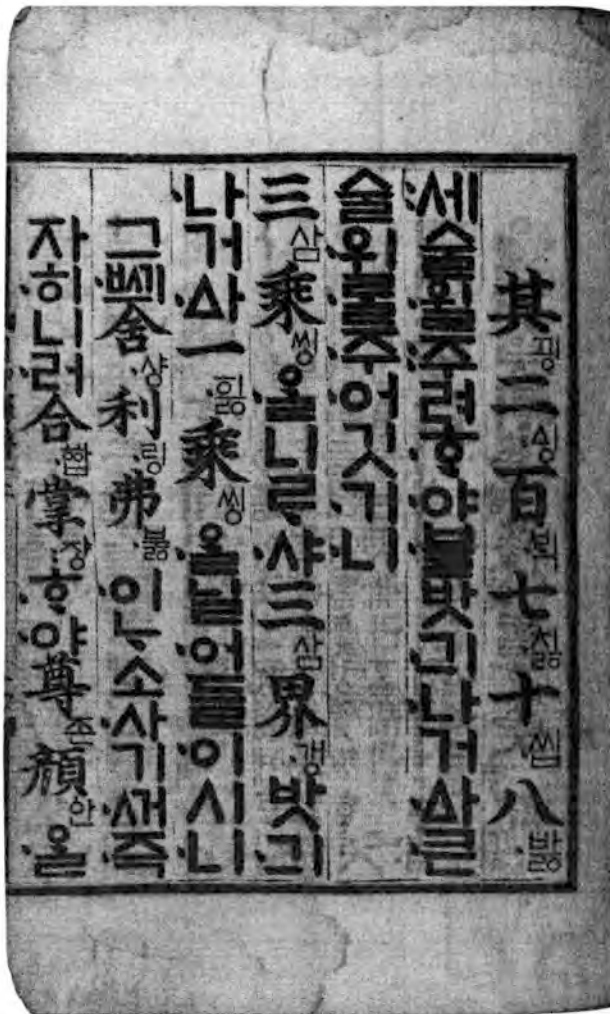 其끵二ᅀᅵᆼ百ᄇᆡᆨ七치ᇙ十씹八바ᇙ
세술윌주려ᄒᆞ야블밧긔나거ᅀᅡ큰
술위ᄅᆞᆯ주어깃기니
三삼乘씽을니ᄅᆞ샤三삼界갱밧긔
나거ᅀᅡ一ᅙᅵᇙ乘씽을닐어들이시니
그ᄢᅴ舍샹利링弗부ᇙ이ᄂᆞ소사기ᄭᅥ즉
자히니러合ᅘᅡᆸ掌쟝ᄒᆞ야尊존顔안ᄋᆞᆯ